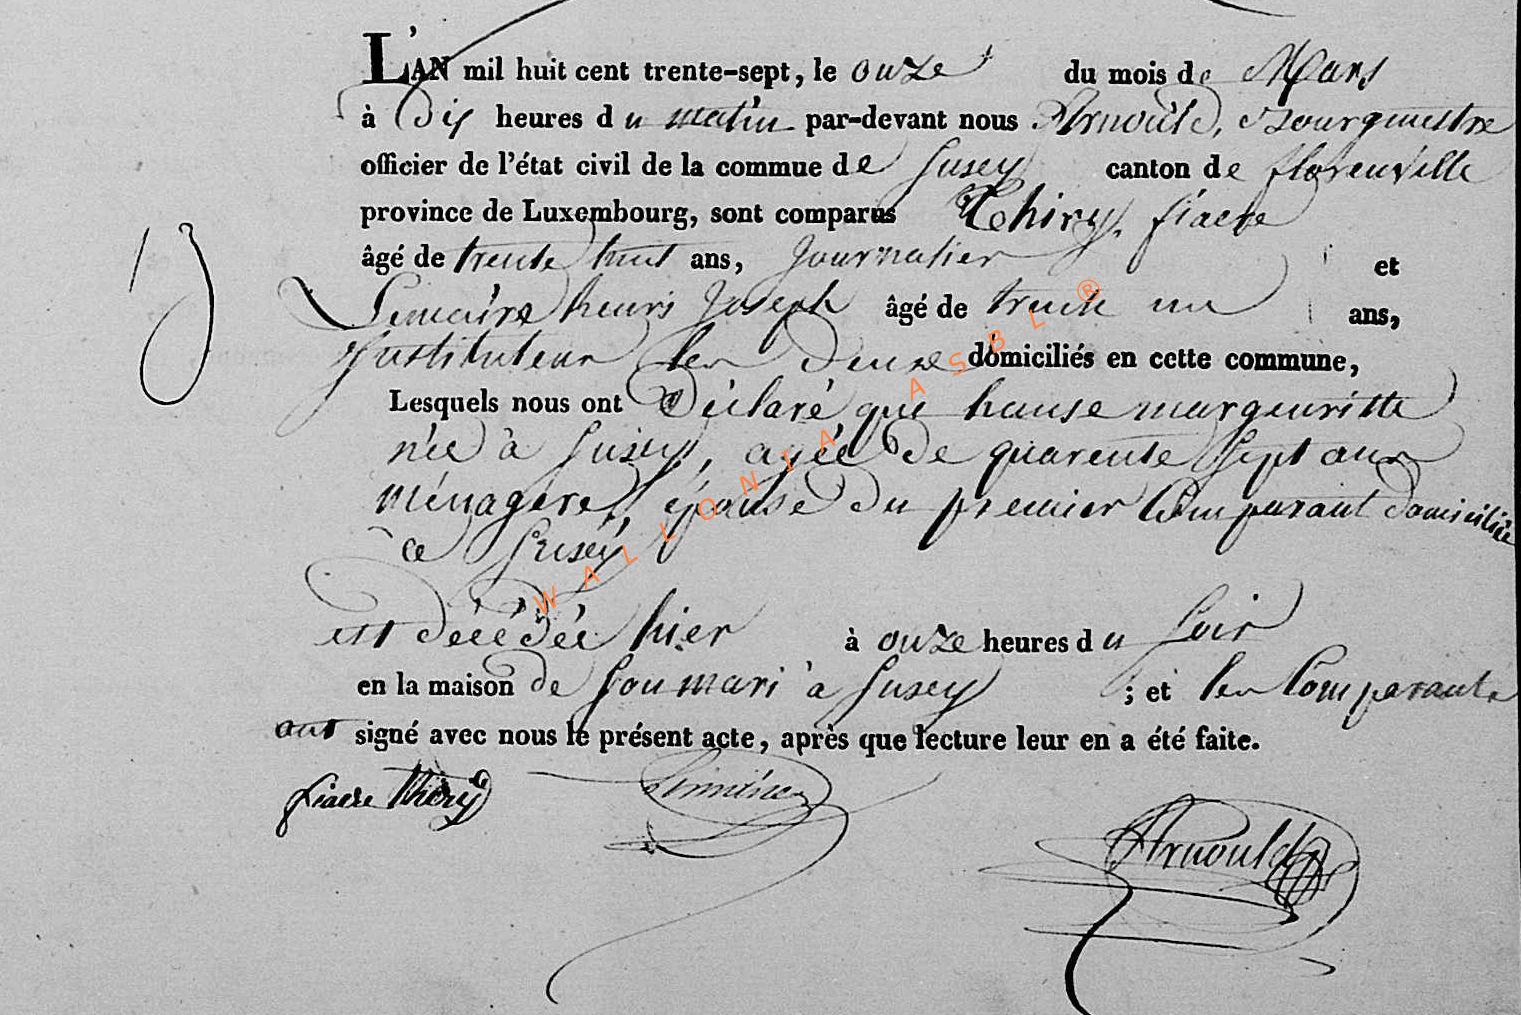 L'AN mil huit cent trente-sept, le onze du mois de Mars
à Dix heures du matin par-devant nous Arnould, Bourgmestre
officier de l'état civil de la commue de Susey canton de florenville
province de Luxembourg, sont comparus Thiry, fiacre
âgé de trente huit ans, Journalier et
Lemaire henri Joseph âgé de trente un ans,
Instituteur les deux domiciliés en cette commune,
Lesquels nous ont Déclaré que hanse margueritte
née à Susey, agée de quarente Sept ans
ménagere, épouse du premier Comparant domiciliée
a Susey
est décédée hier à onze heures du Soir
en la maison de Son mari à Susey ; et les Comparants
ont signé avec nous le présent acte, après que lecture leur en a été faite.
fiacre Thiery Arnould
WALLONIA ASBL ®